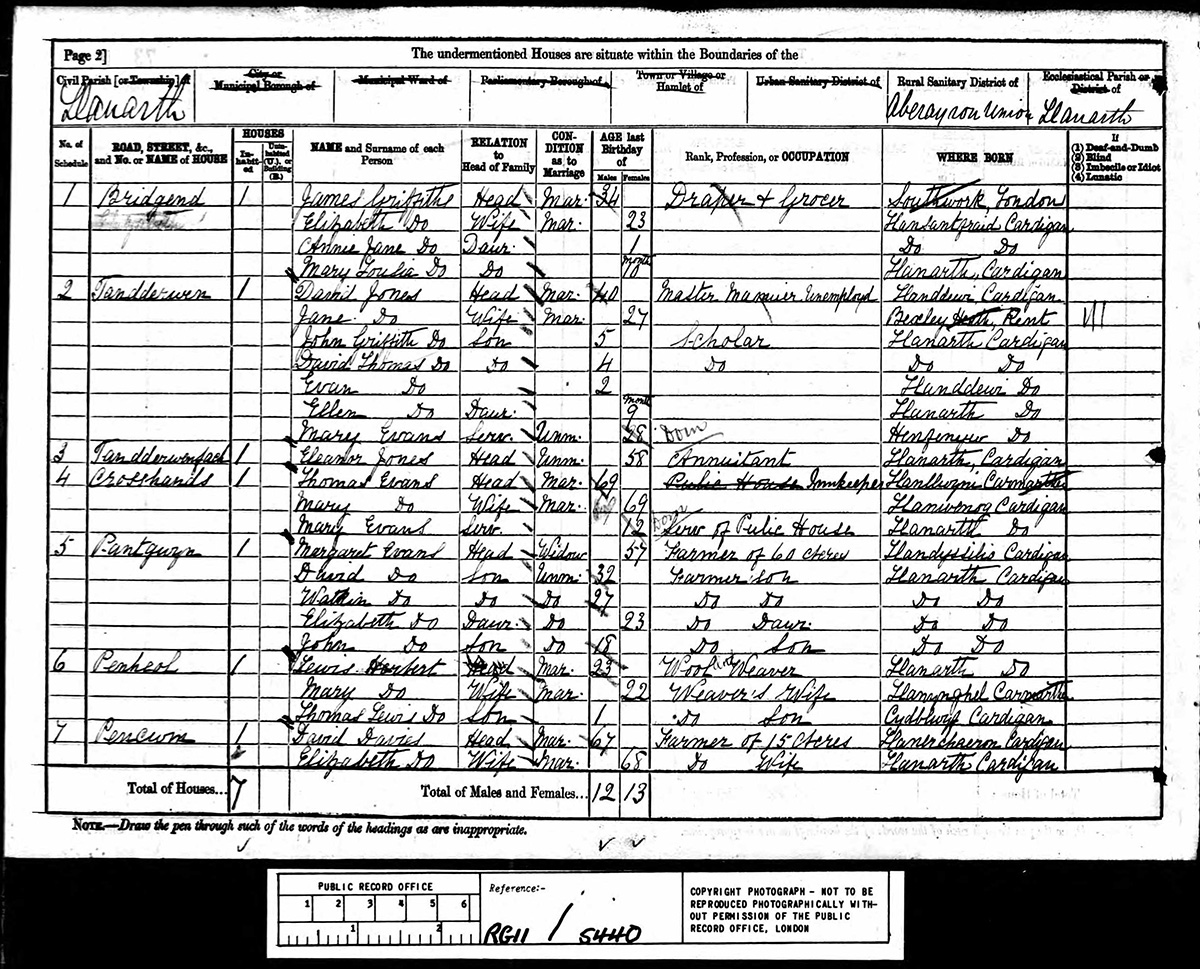 Page 2]
The undermentioned Houses are situate within the Boundaries of the
Civil Parish [or Township] of
City or Municipal Borough of
Municipal Ward of
Parliamentary Borough of
Town or Village or Hamlet of
Urban Sanitary District of
Rural Sanitary District of
Ecclesiastical Parish or District of
Llanarth
Aberayron Union
Llanarth
No. of Schedule
ROAD, STREET, &c., and No. or NAME of HOUSE
HOUSES
In-habit-ed
Unin-habited (U.), or Building (B.)
NAME and Surname of each Person
RELATION to Head of Family
CON-DITION as to Marriage
AGE last Birthday of
Males
Females
Rank, Profession, or OCCUPATION
WHERE BORN
If
(1) Deaf-and-Dumb
(2) Blind
(3) Imbecile or Idiot
(4) Lunatic
1 Bridgend 1 James Griffiths Head Mar. 34 Draper & Grocer Southwork, London
Elizabeth Do Wife Mar. 23 Llansantfraid Cardigan
Annie Jane Do Daur. 1 Do Do
Mary Louisa Do Do month 10 Llanarth, Cardigan
2 Tandderwen 1 David Jones Head Mar. 40 Master Mariner Unemployd Llanddewi, Cardigan
Jane Do Wife Mar. 27 Bexley Heath, Kent
John Griffith Do Son 5 Scholar Llanarth Cardigan
David Thomas Do Do 4 Do Do Do
Evan Do 2 Llanddewi Do
Ellen Do Daur. month 9 Llanarth Do
Mary Evans Serv. Unm. 28 Dom Henfenyw Do
3 Tandderwenfach 1 Eleanor Jones Head Unm. 58 Annuitant Llanarth, Cardigan
4 Crosshands 1 Thomas Evans Head Mar. 69 Public House Innkeeper Llanllwyni Carmarthen
Mary Do Wife Mar. 69 Llanwenog Cardigan
Mary Evans Serv. 12 Dom Serv of Pulic House Llanarth Do
5 Pantgwyn 1 Margaret Evans Head Widow 57 Farmer of 60 Acres Llandyssilis Cardigan
David Do Son Unm. 32 Farmer'son Llanarth Cardigan
Watkin Do Do Do 27 Do Do Do Do
Elizabeth Do Daur. Do 23 Do Daur. Do Do
John Do Son Do 18 Do Son Do Do
6 Penheol 1 Lewis Herbert Head Mar. 23 Wool Weaver Llanarth Do
Mary Do Wife Mar. 22 Weaver's Wife Carmarthen
Thomas Lewis Do Son 1 Do Son Cydblwyf Cardigan
7 Pencwm 1 David Davies Head Mar. 67 Farmer of 15 Acres Llanerchaeron Cardigan
Elizabeth Do Wife Mar. 68 Do Wife Llanarth Cardigan
Total of Houses... 7
Total of Males and Females... 12 13
NOTE.—Draw the pen through such of the words of the headings as are inappropriate.
PUBLIC RECORD OFFICE
1 2 3 4 5 6
1 2
Reference:-
RG11 / 5440
COPYRIGHT PHOTOGRAPH - NOT TO BE
REPRODUCED PHOTOGRAPHICALLY WITH-
OUT PERMISSION OF THE PUBLIC
RECORD OFFICE, LONDON